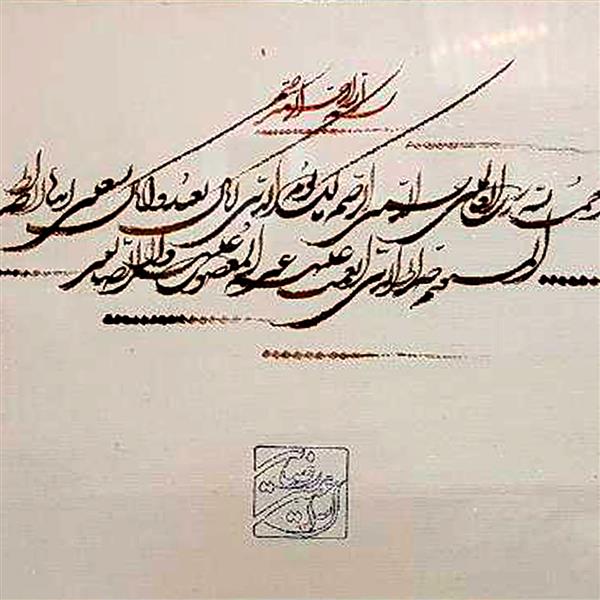 بسم الله الرحمن الرحیم
الحمد لله رب العالمین الرحمن الرحیم مالک یوم الدین ایاک نعبد و ایاک نستعین اهدنا الصراط
المستقیم صراط الذین انعمت علیهم غیر المغضوب علیهم و لا الضالین